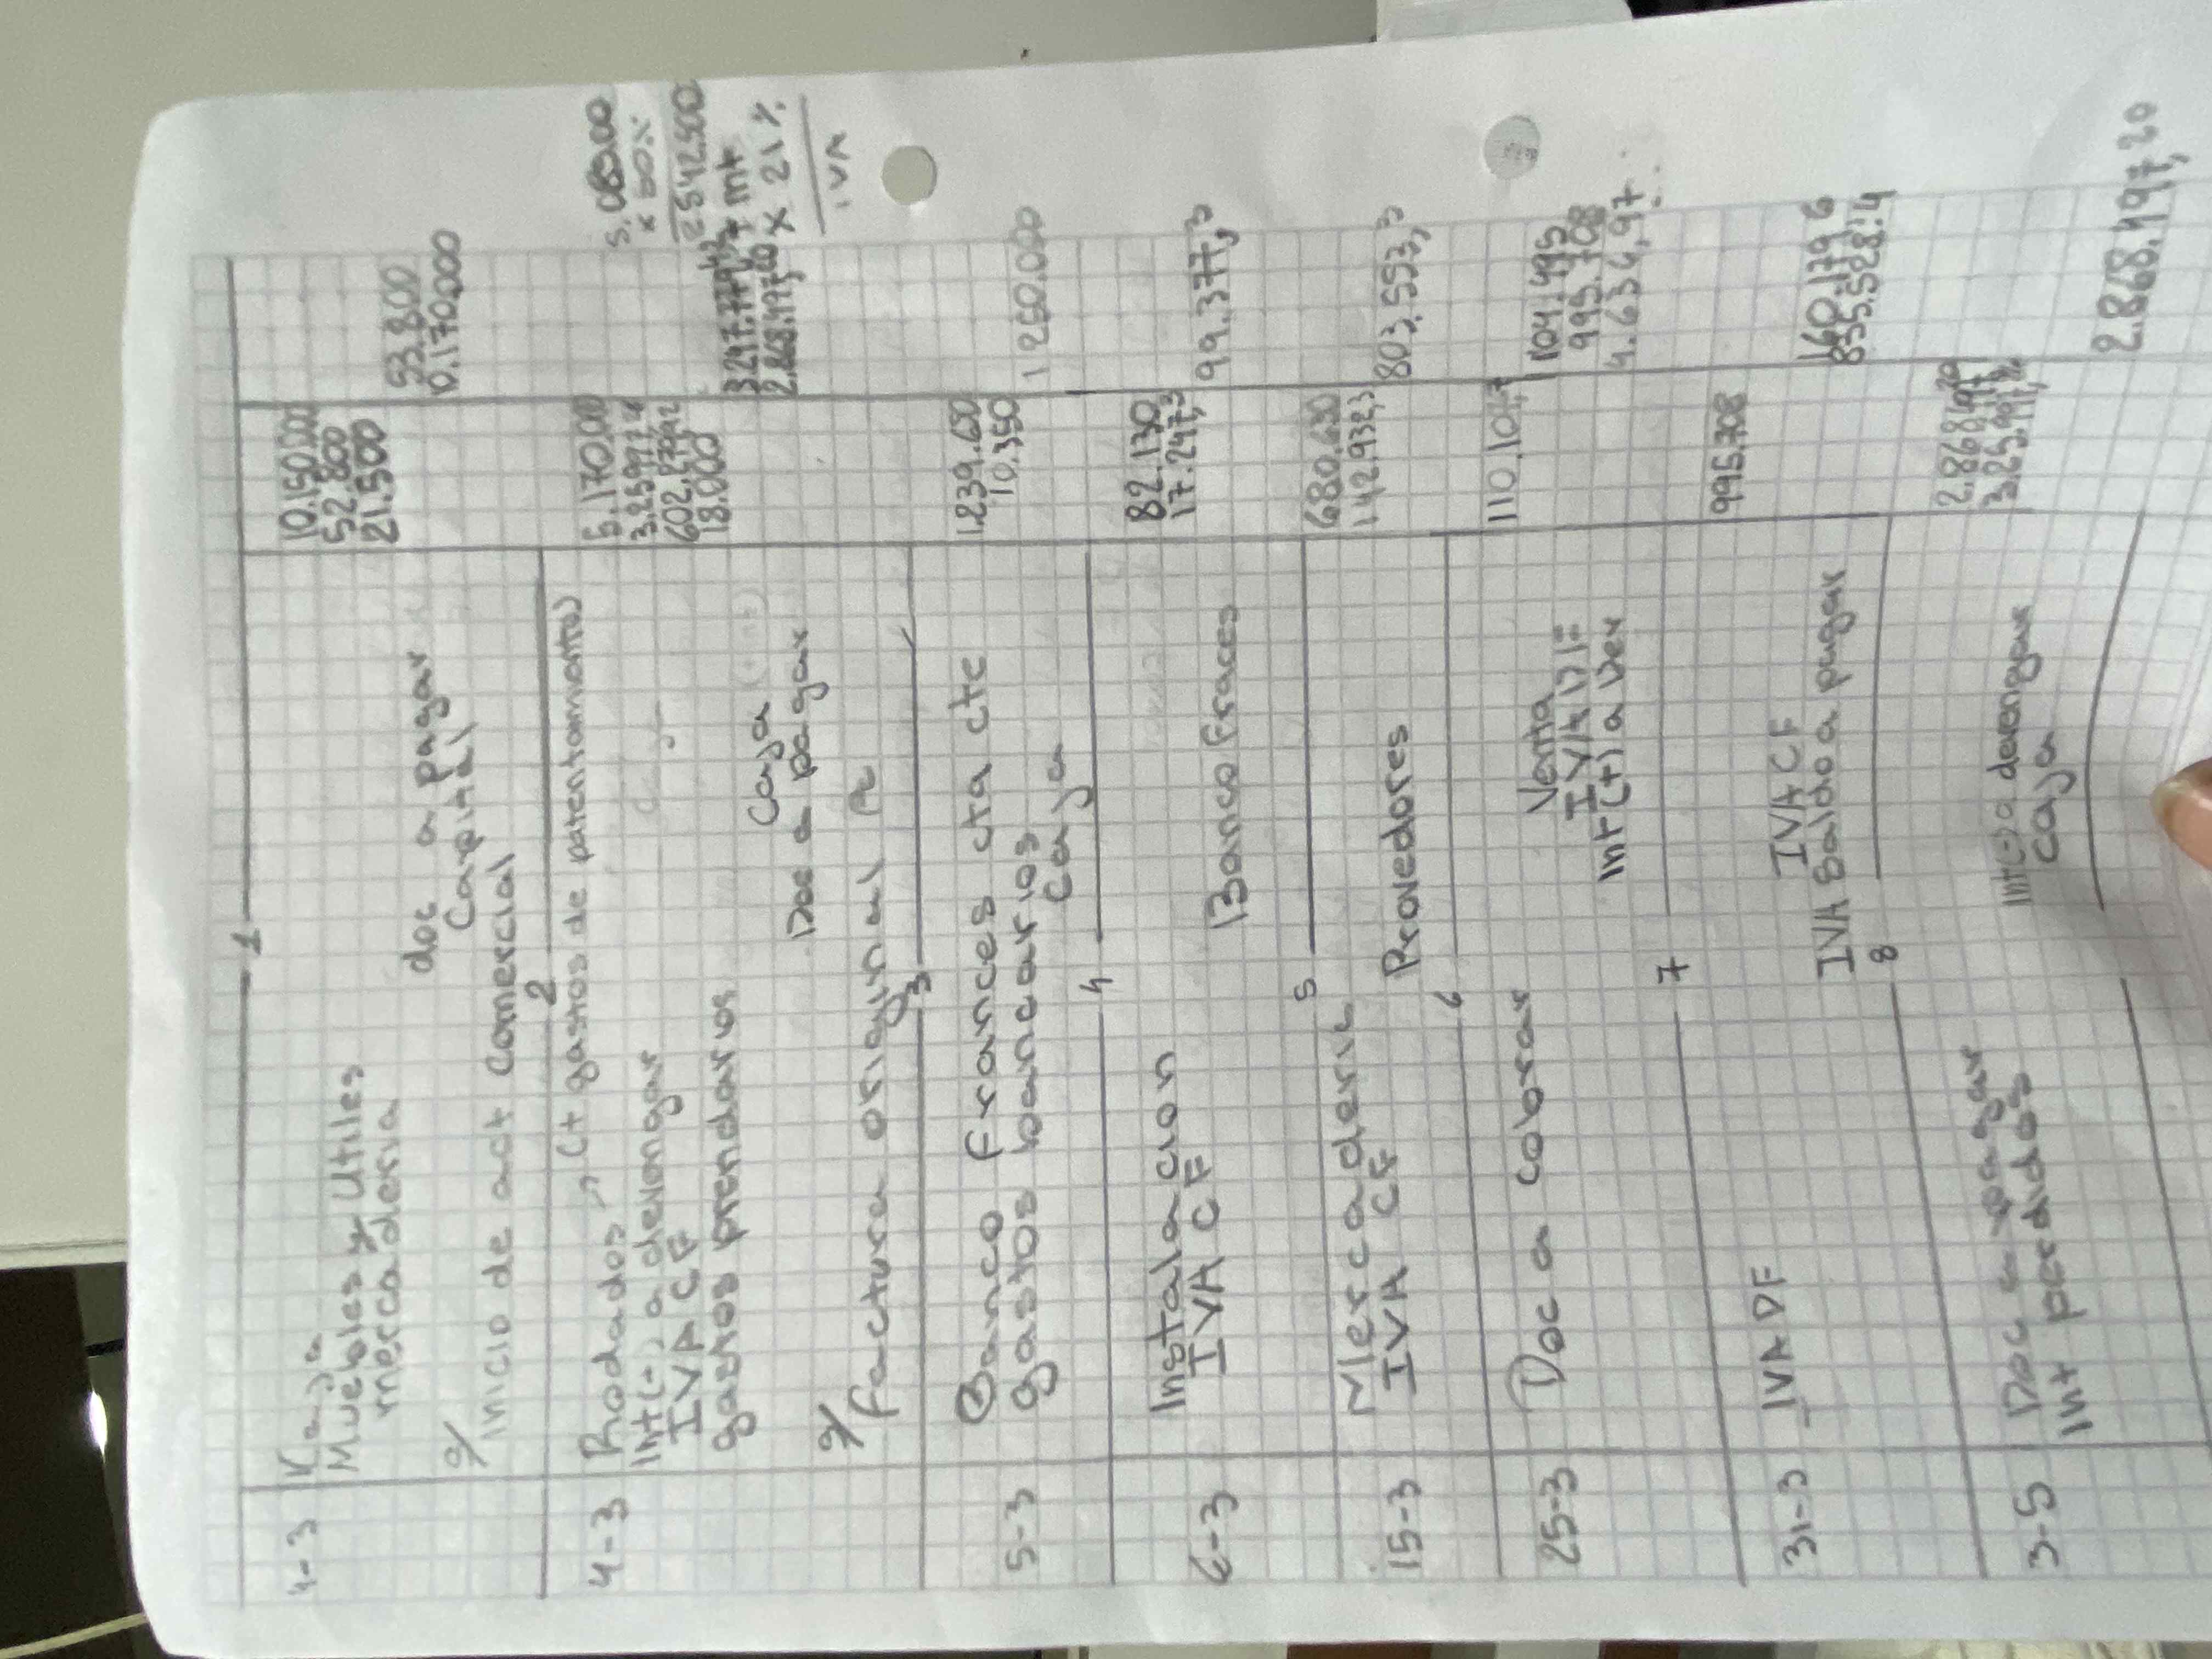 1
4-3 Kaja 10.150.000
Muebles y Utiles 52.800
mercaderia 21.500
doc a pagar 53.800
Capital 0.170.000
s/
inicio de act comercial
2
(+ gastos de patentamiento)
4-3 Rodados 5.170.00
Int(-) a devengar
IVA CF
gastos prendarios 18.000
Caja
Doc a pagar
s/
factura original
5.085.00
x 50%
2542.500
x 21%
IVA
3
5-3 Banco frances cta cte 1.239.650
gastos bancarios 10.350
caja 1250.000
4
6-3 Instalacion 82.130
IVA CF 17.247,3
Banco fraces 99.377,3
5
15-3 Mercaderia 680.630
IVA CF 142.932,3
Provedores 803.553,3
6
25-3 Doc a cobrar 110.104,7
Venta 104.495
IVA DF 995.708
Int(+) a Dev 4.634,97
7
31-3 IVA DF 995.708
IVA CF 160.179,6
IVA Saldo a pagar 835.528,4
8
3-5 Doc a pagar 2.868.497,20
Int perdidos
Int(-) a devengar
Caja 2.868.497,20